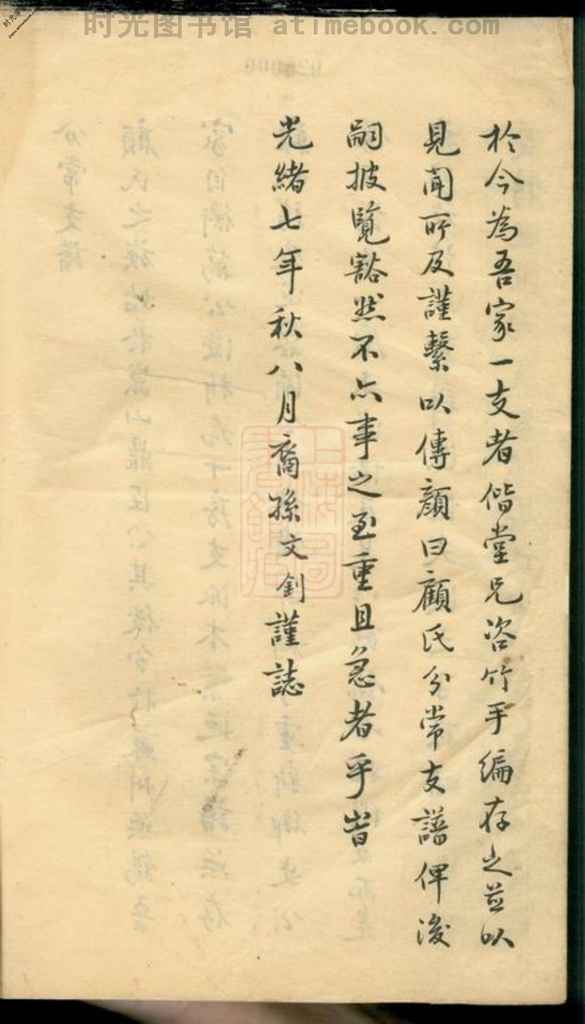 时光图书馆 atimebook.com
於今為吾家一支者偕堂兄咨竹手編存之並以
見聞所及謹繫以傳顏曰顧氏分常支譜俾後
嗣披覽豁然不亦事之至重且急者乎旹
光緒七年秋八月裔孫文釗謹誌